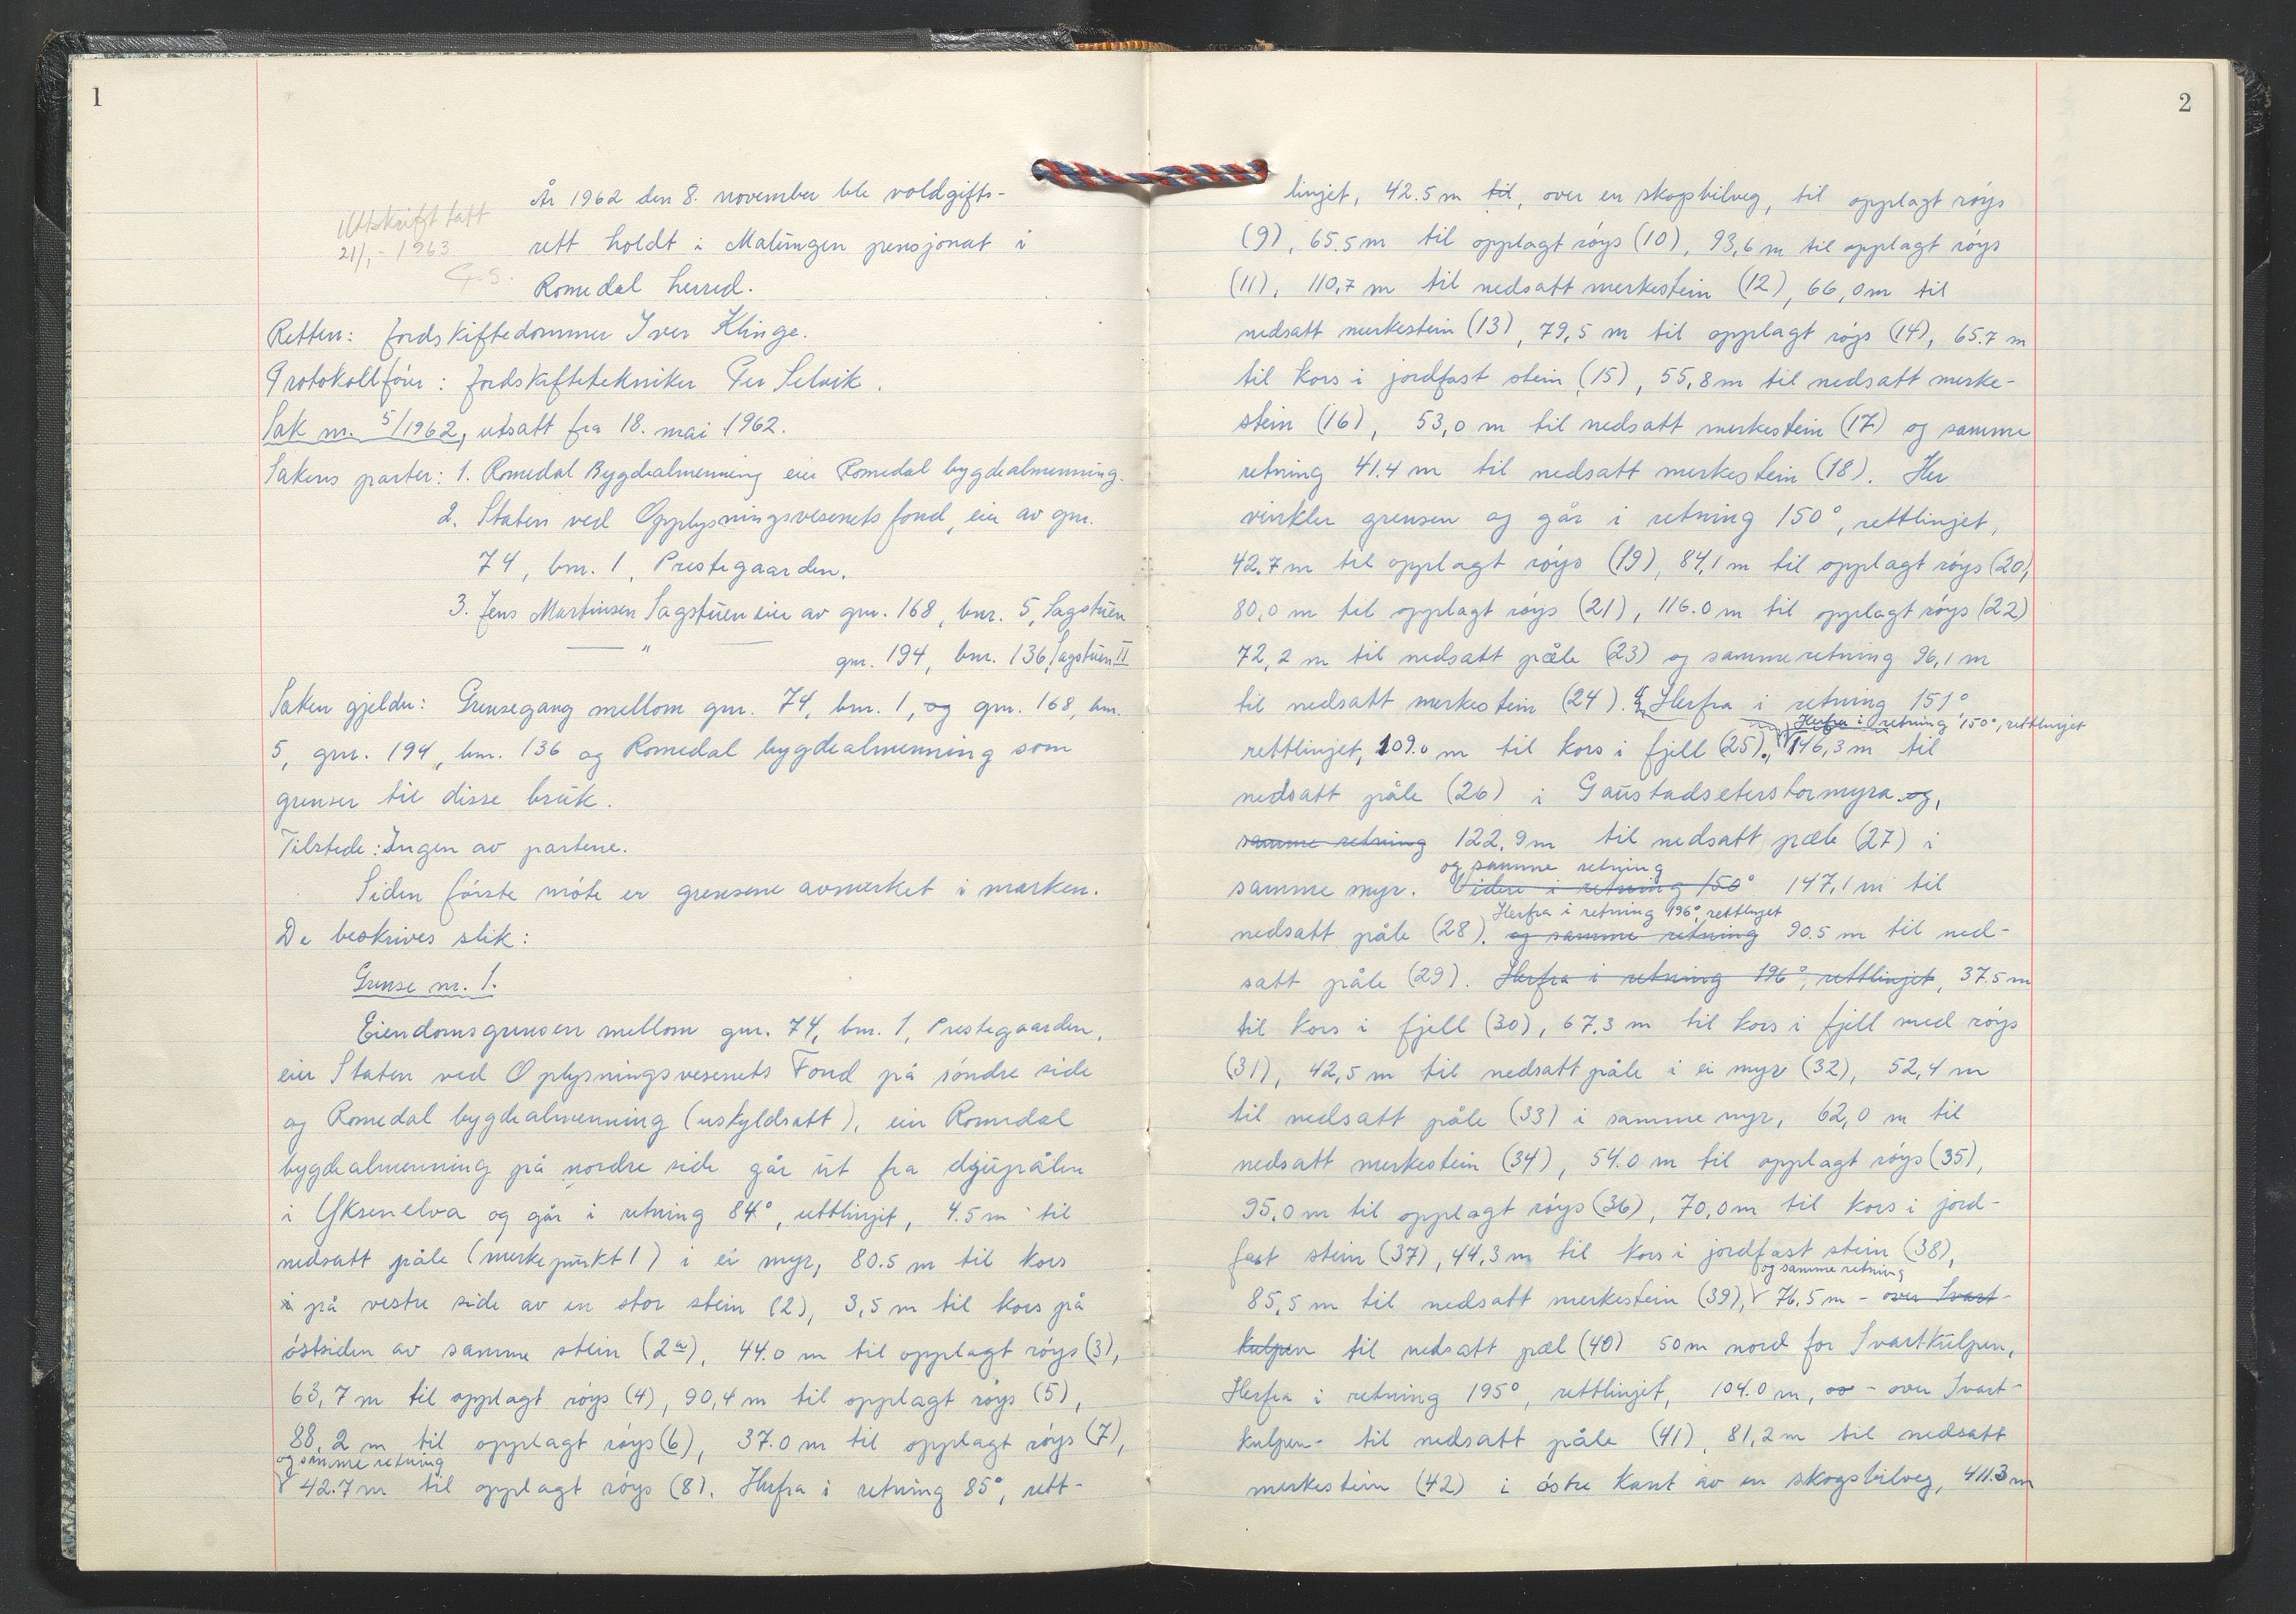 1
År 1962 den 8. november ble voldgifts-
Utskrift tatt
21/1 - 1963
rett holdt i Malungen pensjonat i
Romedal herred.
Retten: Jordskiftedommer Iver Klinge.
Protokollfører: Jordskiftetekniker Per Selvik.
Sak nr. 5/1962, utsatt fra 18. mai 1962.
Sakens parter: 1. Romedal Bygdealmenning eier Romedal bygdealmenning.
2. Staten ved Opplysningsvesenets fond, eier av gnr.
74, bnr. 1, Prestegaarden.
3. Jens Martinsen Sagstuen eier av gnr. 168, bnr. 5, Sagstuen
— " — gnr. 194, bnr. 136, Sagstuen II
Saken gjelder: Grensegang mellom gnr. 74, bnr. 1, og gnr. 168, bnr.
5, gnr. 194, bnr. 136 og Romedal bygdealmenning som
grenser til disse bruk.
Tilstede: Ingen av partene.
Siden første møte er grensene avmerket i marken.
De beskrives slik:
Grense nr. 1.
Eiendomsgrensen mellom gnr. 74, bnr. 1, Prestegaarden,
eier Staten ved Oplysningsvesenets Fond på søndre side
og Romedal bygdealmenning (uskyldsatt), eier Romedal
bygdealmenning på nordre side går ut fra djupålen
i Yksenelva og går i retning 84°, rettlinjet, 4.5 m til
nedsatt påle (merkepunkt 1) i ei myr, 80.5 m til kors
i på vestre side av en stor stein (2), 3,5 m til kors på
østsiden av samme stein (2a), 44.0 m til opplagt røys (3),
63,7 m til opplagt røys (4), 90,4 m til opplagt røys (5),
88,2 m til opplagt røys (6), 37.0 m til opplagt røys (7),
og samme retning
42.7 m til opplagt røys (8). Herfra i retning 85°, rett-
2
linjet, 42.5 m til, over en skogsbilveg, til opplagt røys
(9), 65.5 m til opplagt røys (10), 93,6 m til opplagt røys
(11), 110,7 m til nedsatt merkestein (12), 66,0 m til
nedsatt merkestein (13), 79,5 m til opplagt røys (14), 65.7 m
til kors i jordfast stein (15), 55,8 m til nedsatt merke-
stein (16), 53,0 m til nedsatt merkestein (17) og samme
retning 41.4 m til nedsatt merkestein (18). Her
vinkler grensen og går i retning 150°, rettlinjet,
42.7 m til opplagt røys (19), 84,1 m til opplagt røys (20),
80,0 m til opplagt røys (21), 116.0 m til opplagt røys (22)
72,2 m til nedsatt påle (23) og samme retning 96,1 m
til nedsatt merkestein (24). Herfra i retning 151°
Herfra i retning 150°, rettlinjet
rettlinjet, 109.0 m til kors i fjell (25). 146,3 m til
nedsatt påle (26) i Gaustadseterstormyra og,
samme retning 122.9 m til nedsatt pæle (27) i
og samme retning
samme myr. Videre i retning 150° 147,1 m til
Herfra i retning 196°, rettlinjet
nedsatt påle (28). og samme retning 90.5 m til ned-
satt påle (29). Herfra i retning 196°, rettlinjet, 37.5 m
til kors i fjell (30), 67.3 m til kors i fjell med røys
(31), 42,5 m til nedsatt påle i ei myr (32), 52,4 m
til nedsatt påle (33) i samme myr, 62,0 m til
nedsatt merkestein (34), 54.0 m til opplagt røys (35),
95.0 m til opplagt røys (36), 70,0 m til kors i jord-
fast stein (37), 44,3 m til kors i jordfast stein (38),
og samme retning
85,5 m til nedsatt merkestein (39), 76.5 m - over Svart-
kulpen til nedsatt pæl (40) 50 m nord for Svartkulpen,
Herfra i retning 195°, rettlinjet, 104.0 m, - over Svart-
kulpen - til nedsatt påle (41), 81,2 m til nedsatt
merkestein (42) i østre kant av en skogsbilveg, 411.3 m